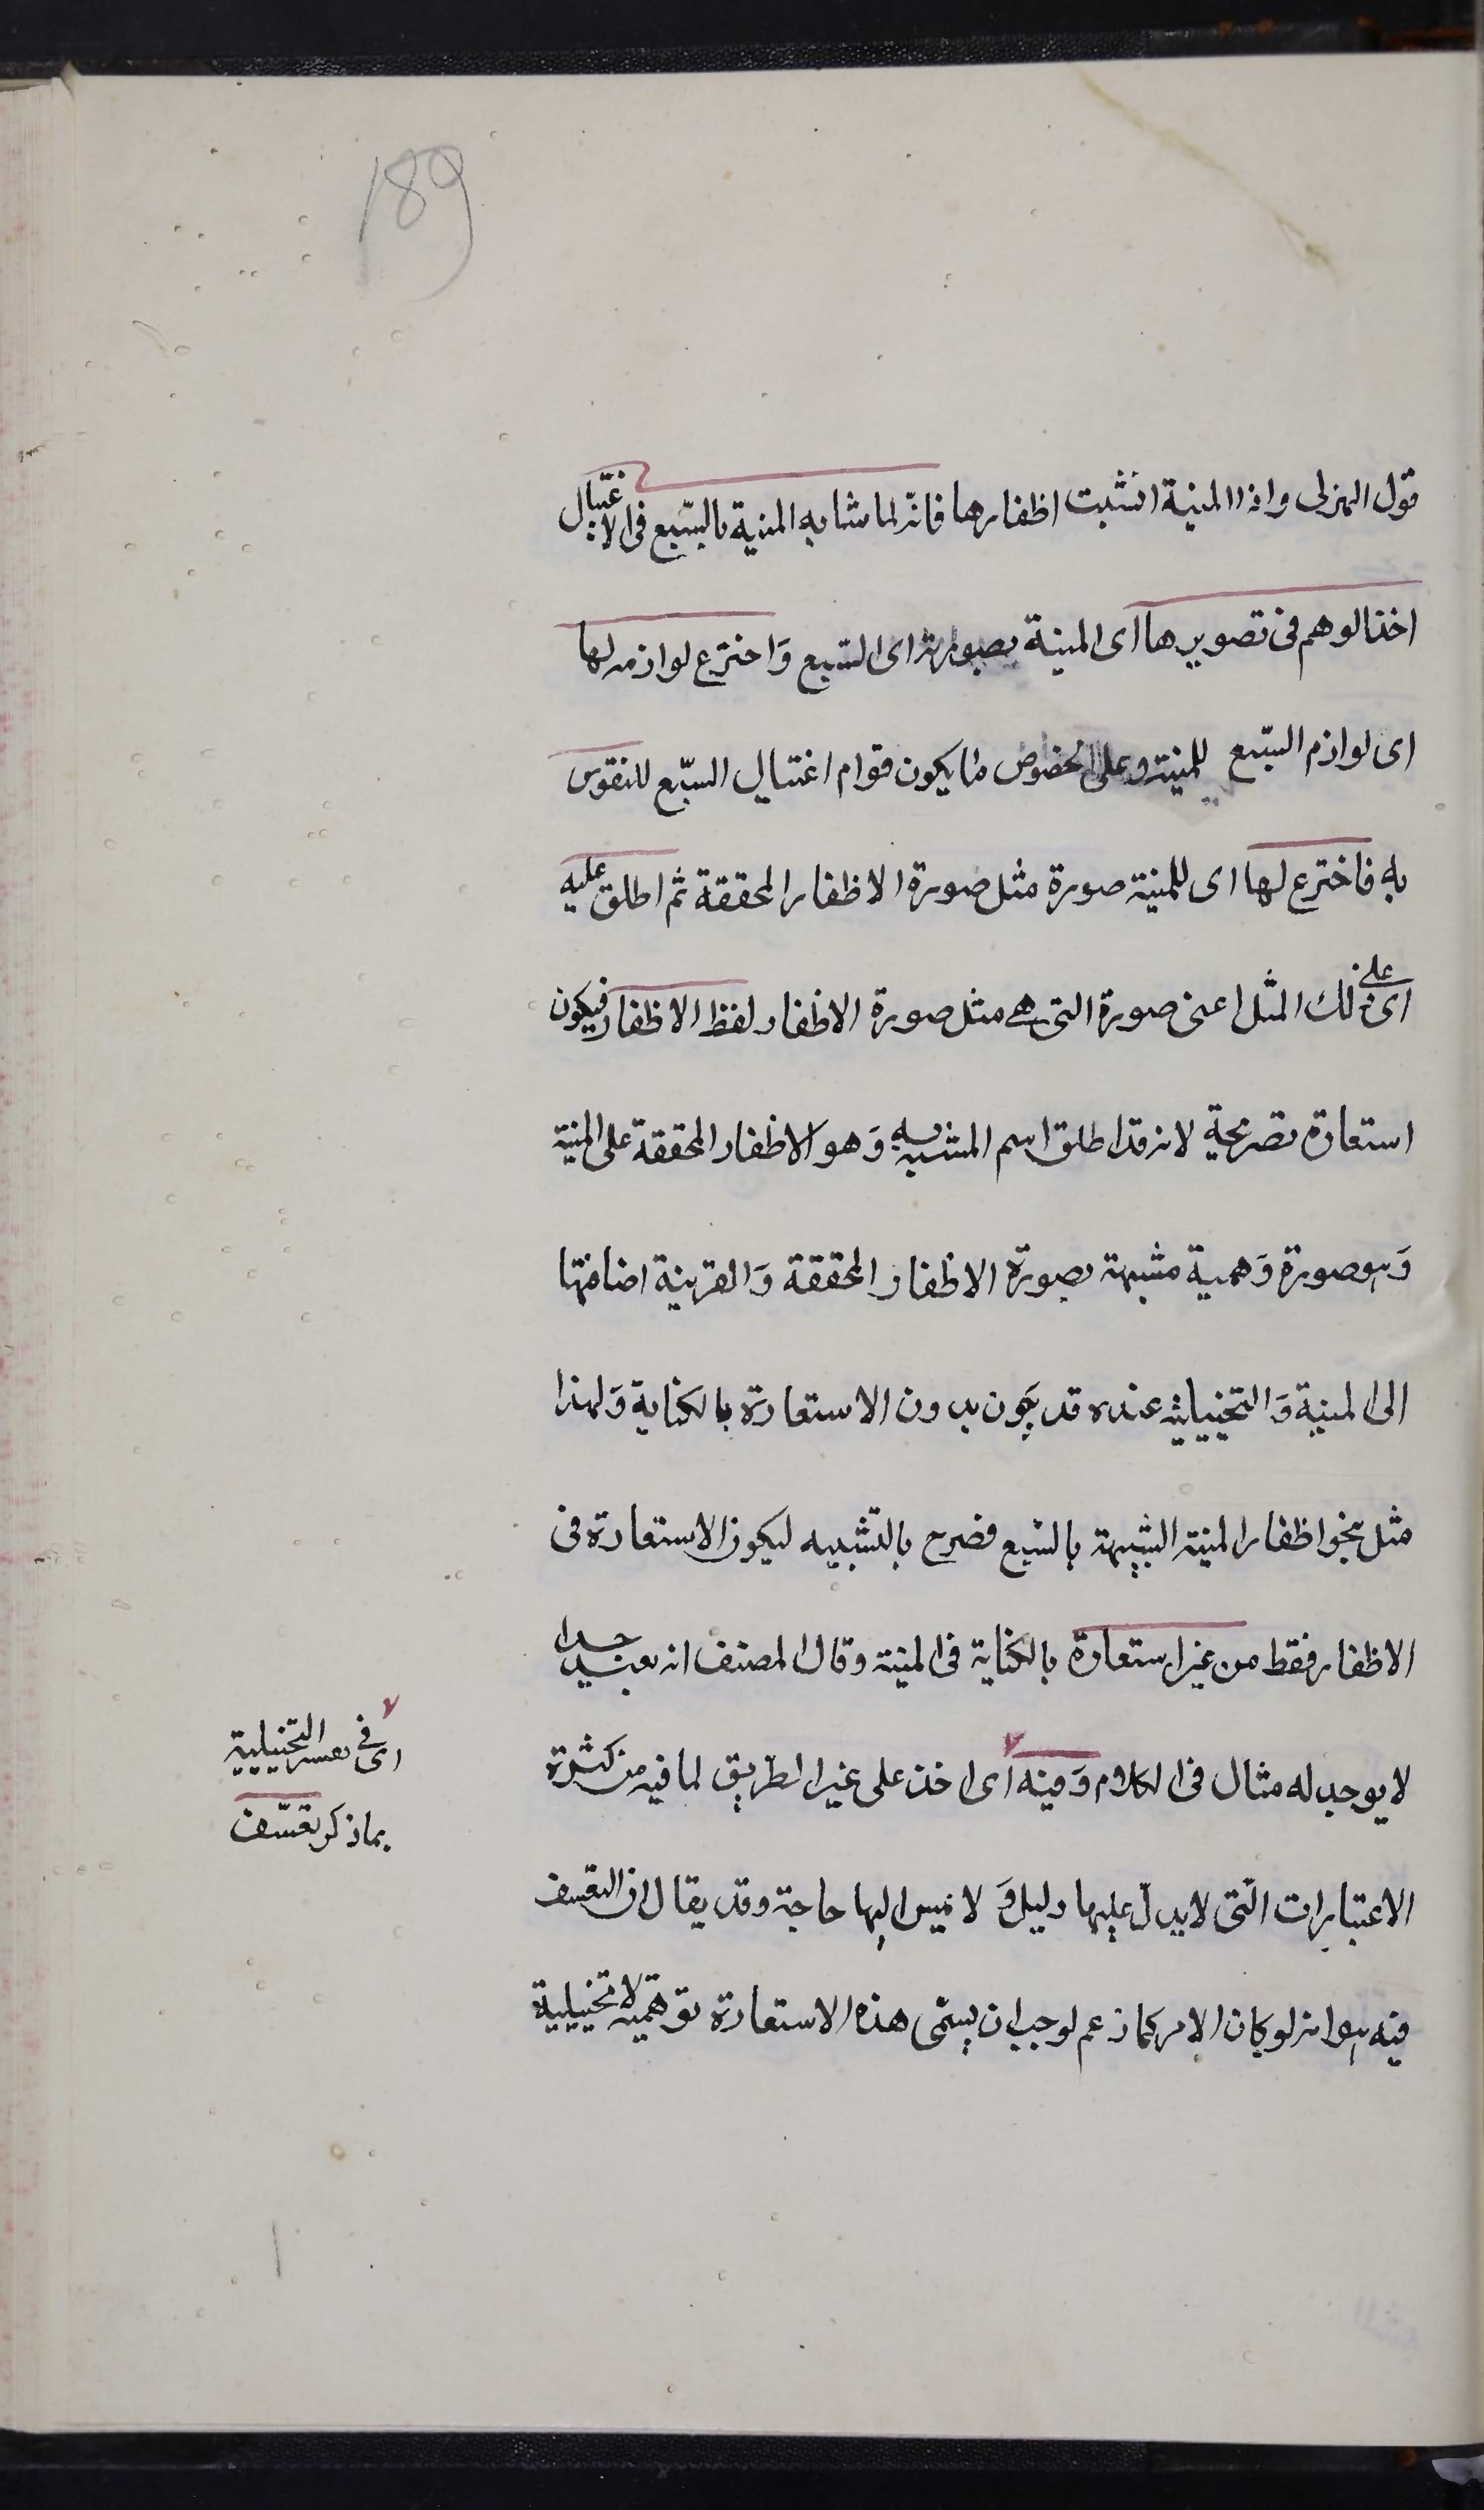 189
قول الهزلى واذا المنية انشبت اظفارها فانّه لما شابه المنية بالسّبع فى الاغتيال
اخذ الوهم فى تصويرها اى المنية بصورته اى السّبع وَاخترع لوازمه لها
اى لوازم السّبع للمنية وعلى الخصوص ما يكون قوام اغتيال السبّع للنفوس
به فاخترع لها اى للمنية صورة مثل صورة الاظفار المحققة ثم اطلق عليه
اى على ذلك المثل اعنى صورة التى هى مثل صورة الاظفار لفظ الاظفار فيكون
استعارة تصريحية لانه قد اطلق اسم المشبه به وَهو الاظفار المحققة على المنية
وَهو صورة وَهمية مشبهة بصورة الاظفار المحققة وَالقرينة اضافتها
الى المنية وَالتخييلية عنده قد يكون بدون الاستعارة بالكناية وَلهذا
مثل بنحو اظفار المنية الشبيهة بالسّبع فصرح بالتشبيه ليكون الاستعارة فى
الاظفار فقط من غير استعارة بالكناية فى المنية وقال المصنف انه بعيد جدا
لا يوجد له مثال فى الكلام وَفيه اى اخذ على غير الطريق لما فيه من كثرة
الاعتبارات التّى لا يدلّ عليها دليل وَ لا تميس اليها حاجة وقد يقال ان التعسف
فيه هو انه لو كان الامر كما زعم لوجب ان يسمّى هذه الاستعارة توهمية لا تخييلية
اى فى تفسير التخييلية
بما ذكر تعسّف